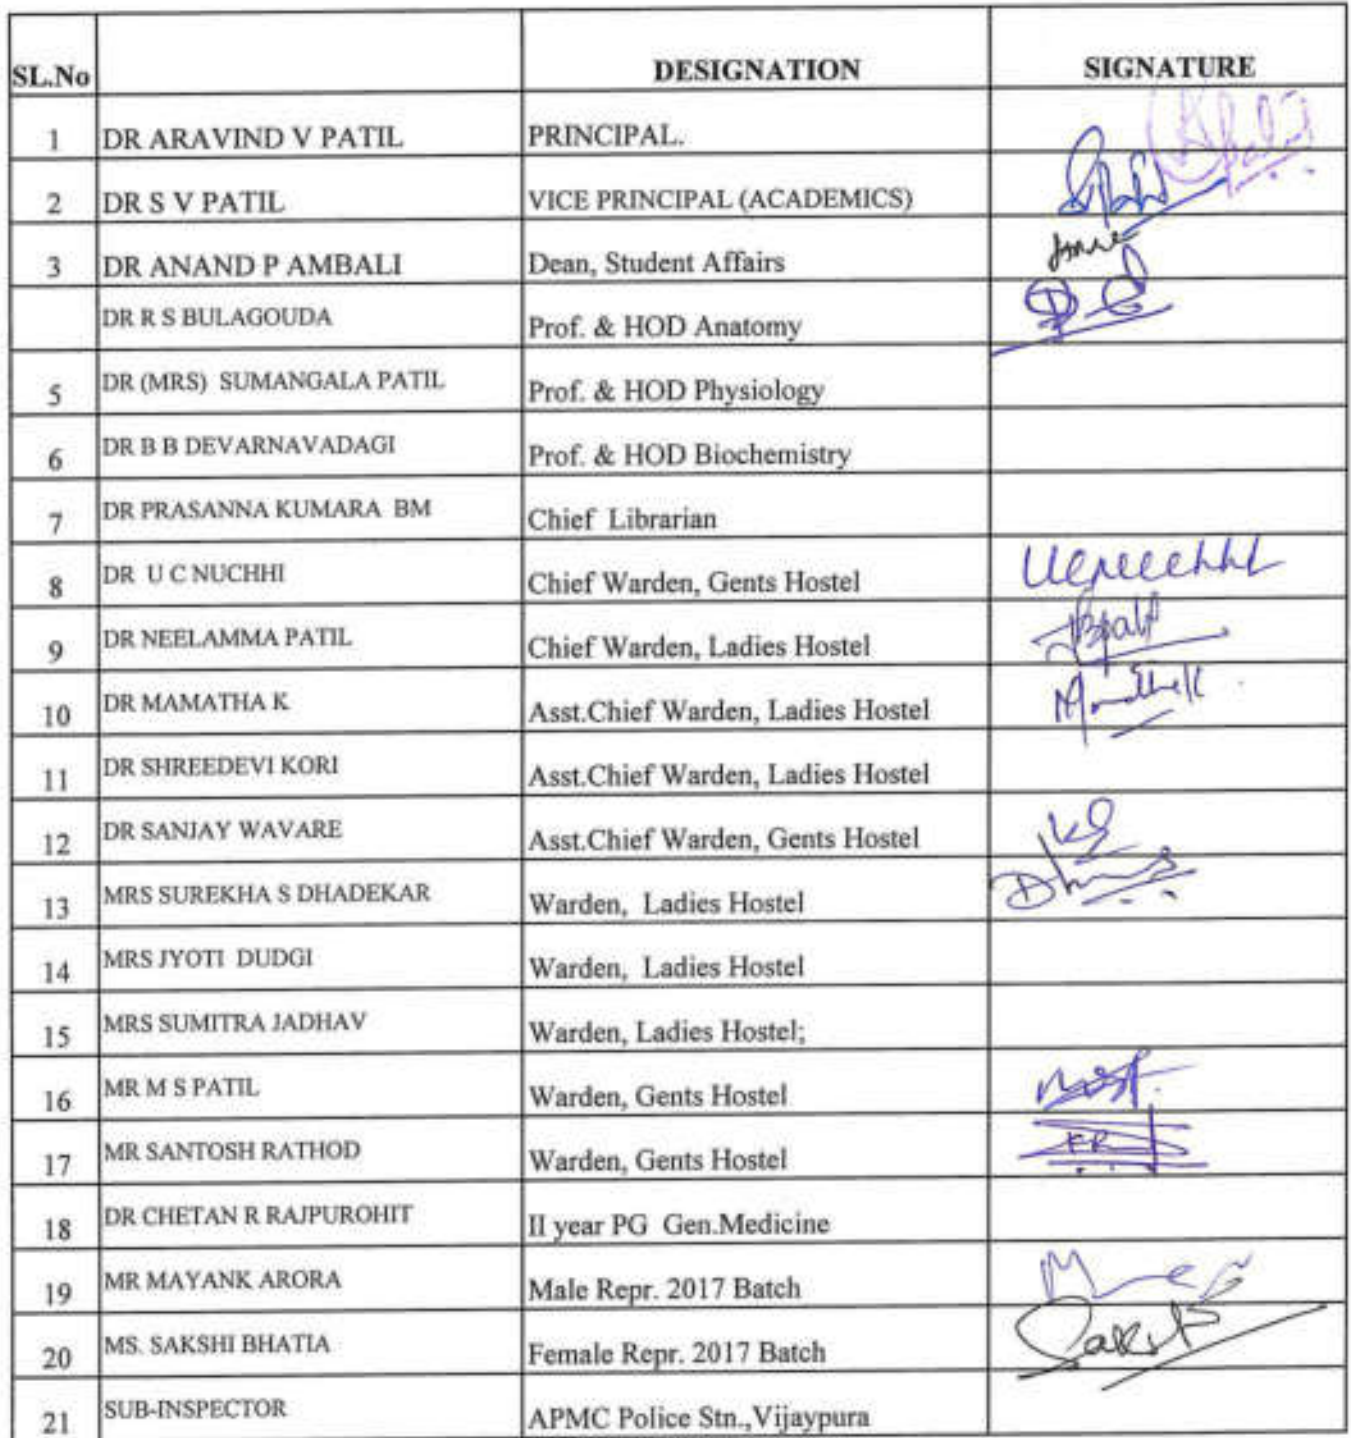 SL.No DESIGNATION SIGNATURE
1 DR ARAVIND V PATIL PRINCIPAL.
2 DR S V PATIL VICE PRINCIPAL (ACADEMICS)
3 DR ANAND P AMBALI Dean, Student Affairs
DR R S BULAGOUDA Prof. & HOD Anatomy
5 DR (MRS) SUMANGALA PATIL Prof. & HOD Physiology
6 DR B B DEVARNAVADAGI Prof. & HOD Biochemistry
7 DR PRASANNA KUMARA BM Chief Librarian
8 DR U C NUCHHI Chief Warden, Gents Hostel
9 DR NEELAMMA PATIL Chief Warden, Ladies Hostel
10 DR MAMATHA K Asst.Chief Warden, Ladies Hostel
11 DR SHREEDEVI KORI Asst.Chief Warden, Ladies Hostel
12 DR SANJAY WAVARE Asst.Chief Warden, Gents Hostel
13 MRS SUREKHA S DHADEKAR Warden, Ladies Hostel
14 MRS JYOTI DUDGI Warden, Ladies Hostel
15 MRS SUMITRA JADHAV Warden, Ladies Hostel;
16 MR M S PATIL Warden, Gents Hostel
17 MR SANTOSH RATHOD Warden, Gents Hostel
18 DR CHETAN R RAJPUROHIT II year PG Gen.Medicine
19 MR MAYANK ARORA Male Repr. 2017 Batch
20 MS. SAKSHI BHATIA Female Repr. 2017 Batch
21 SUB-INSPECTOR APMC Police Stn.,Vijaypura